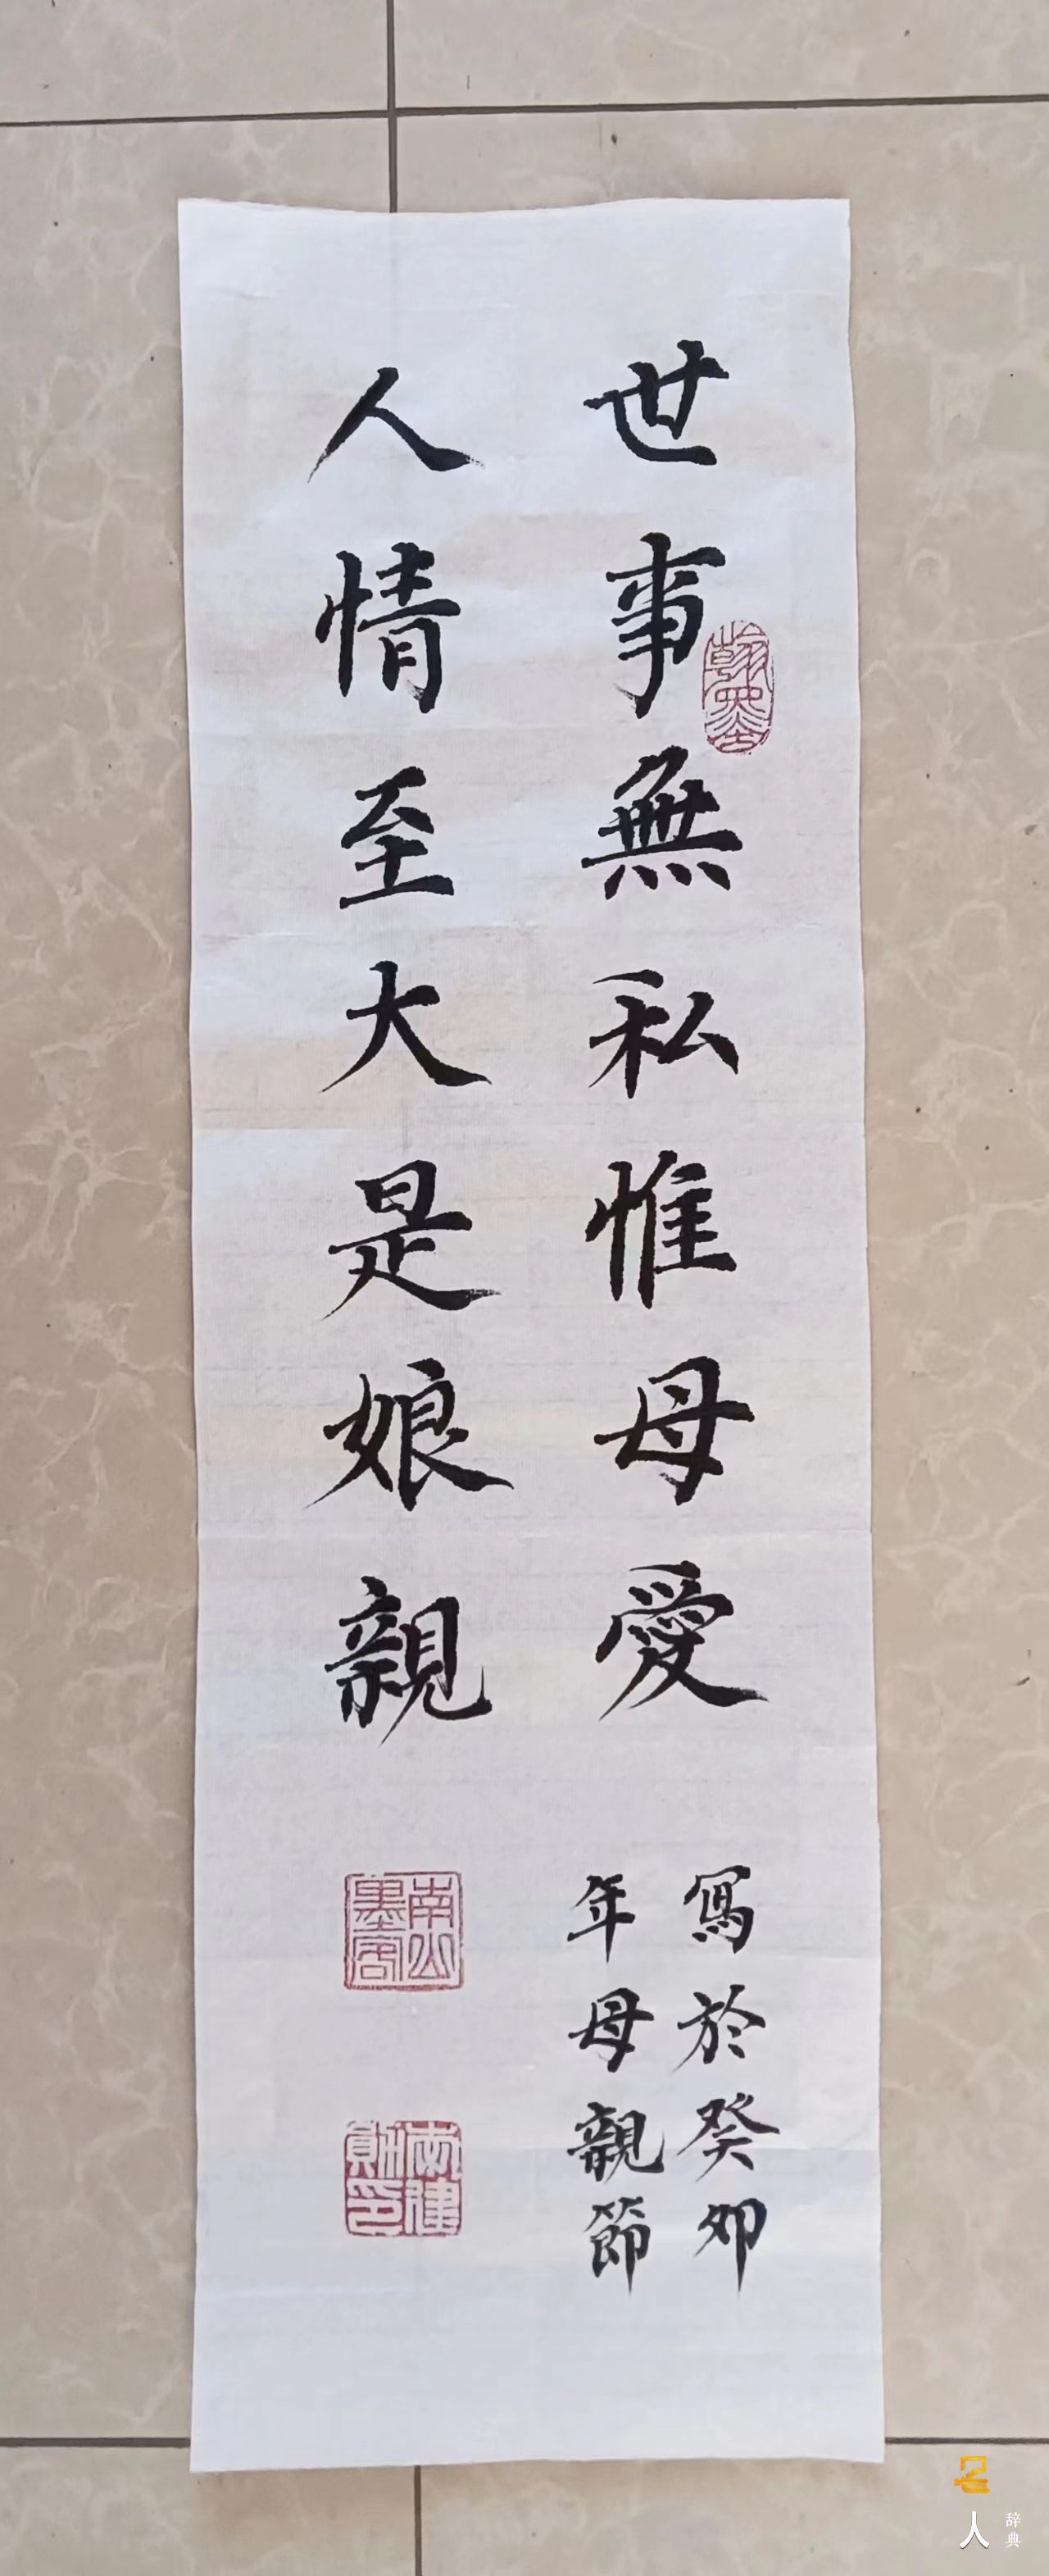 世事無私惟母愛
人情至大是娘親
寫於癸卯
年母親節
翰墨
南山
墨客
人
辞典